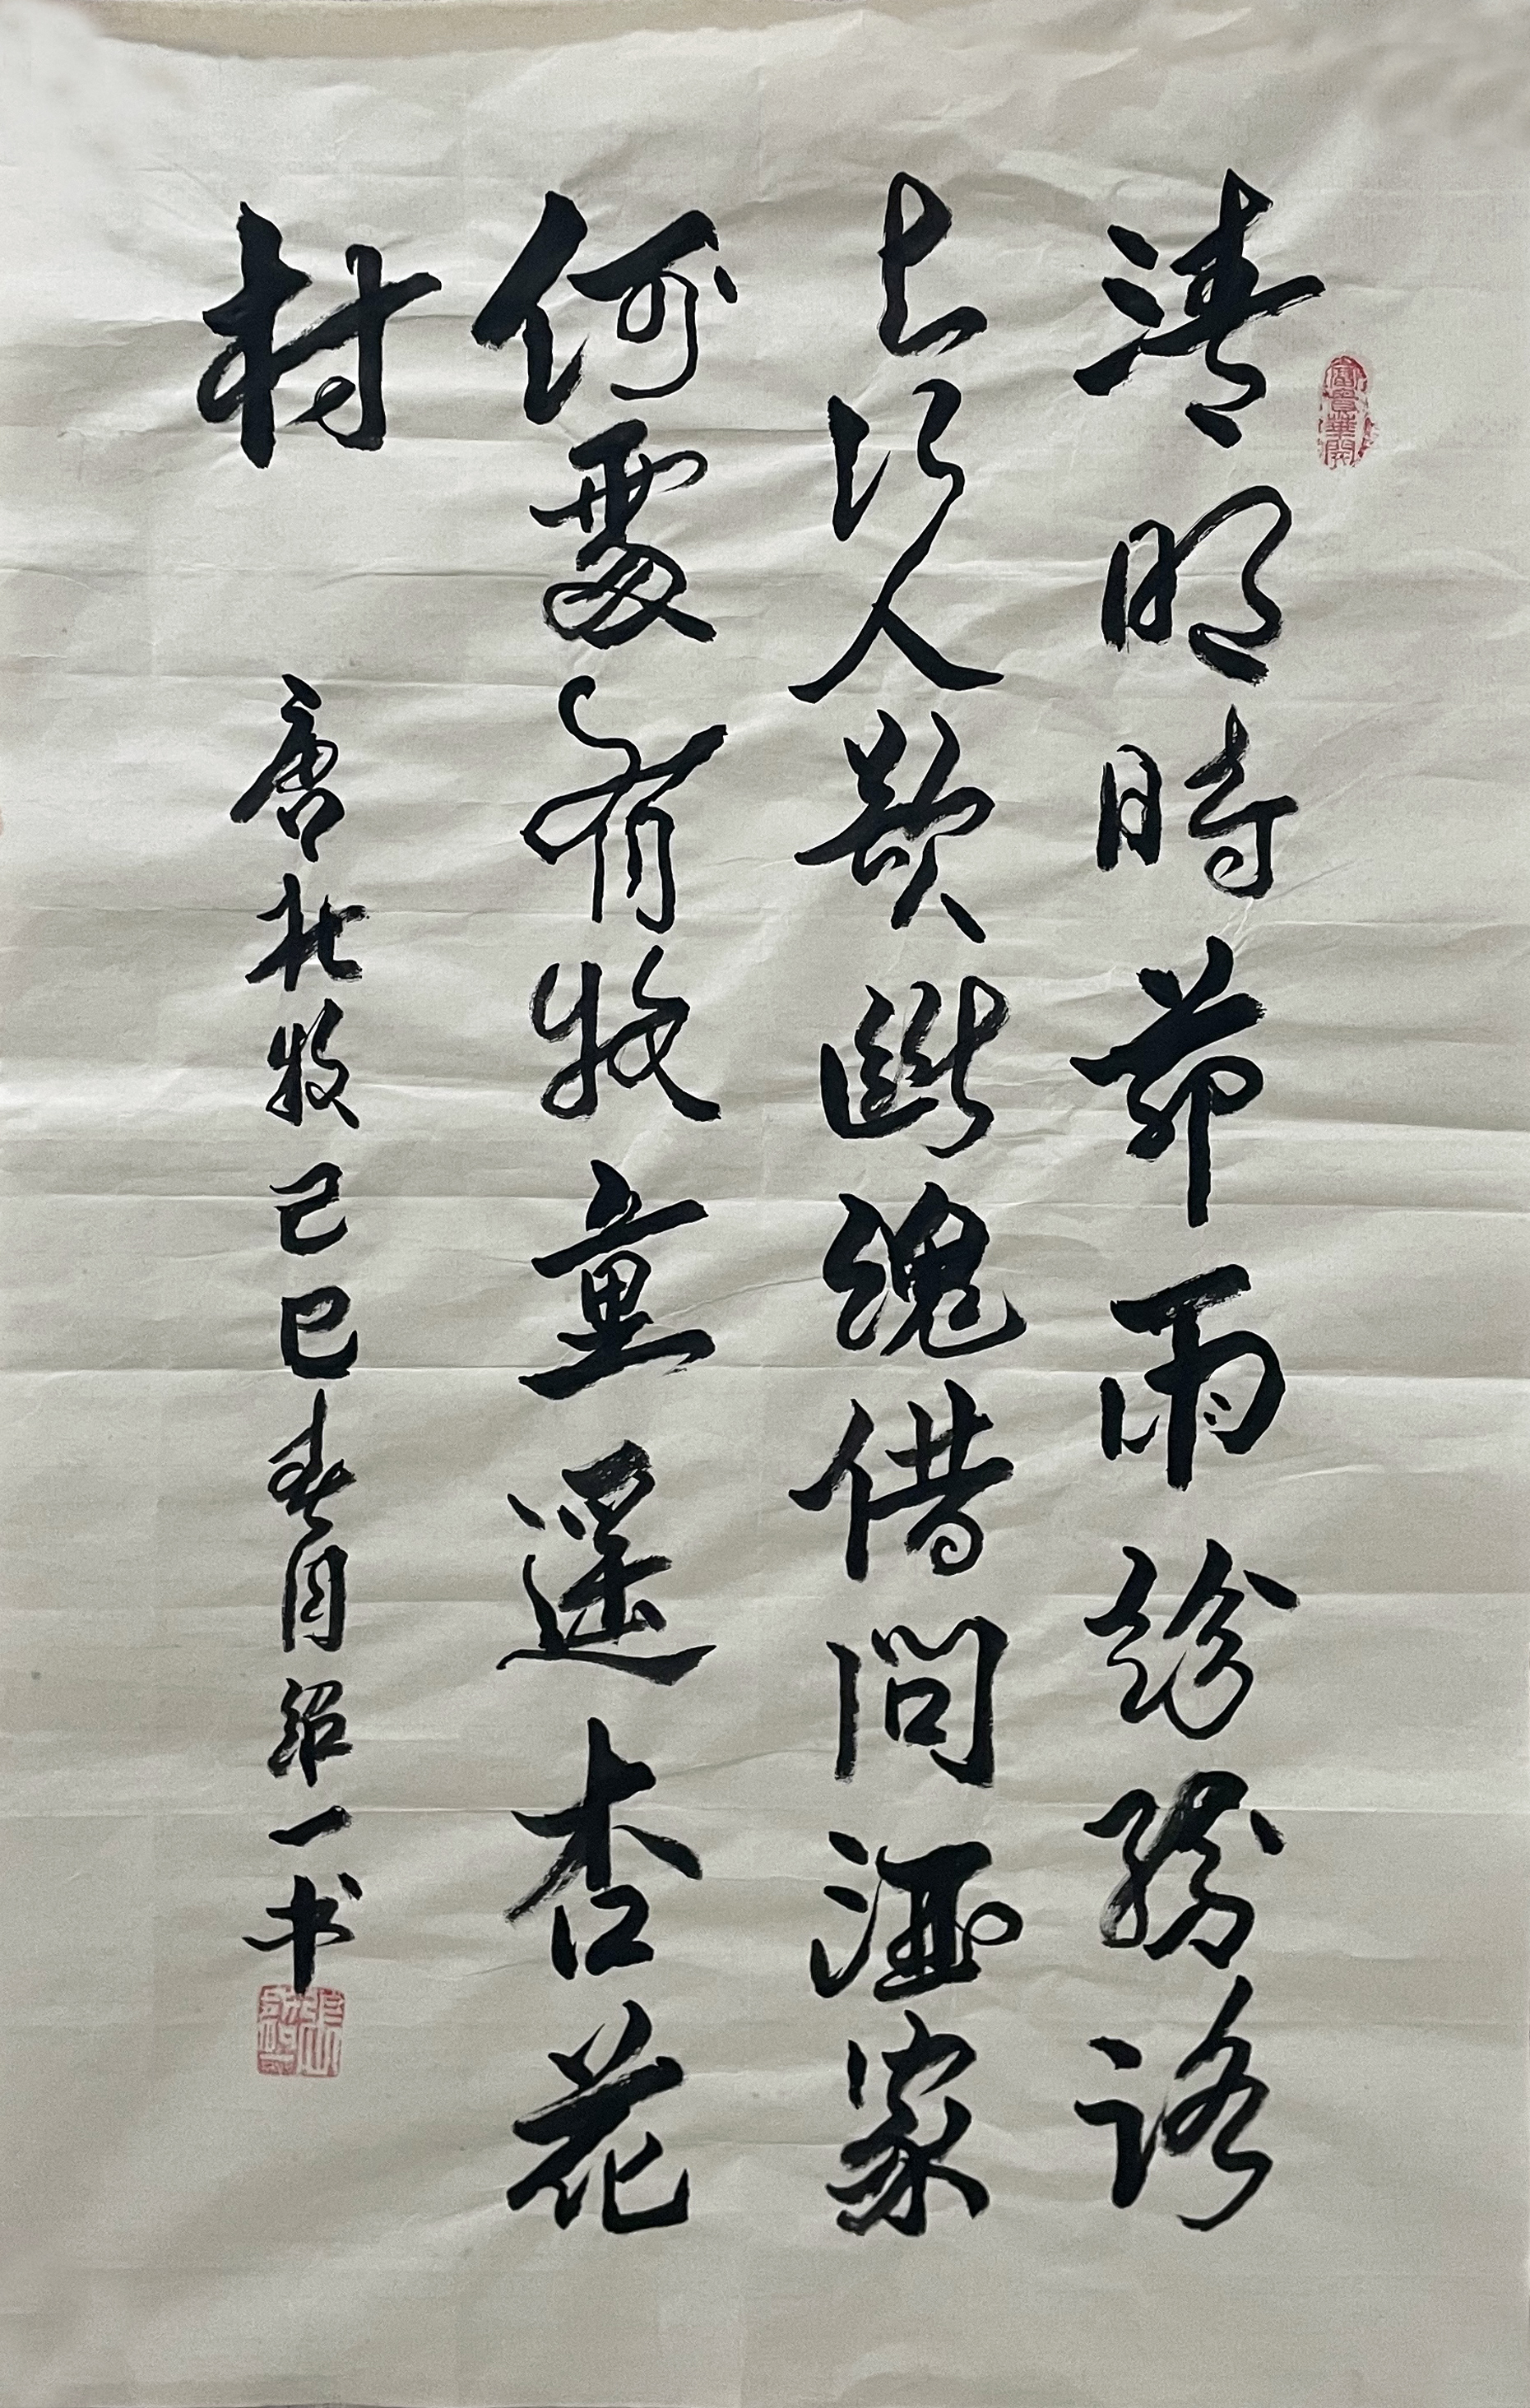 富貴華開
清明時節雨紛紛路
上行人欲斷魂借問酒家
何處有牧童遥杏花
村
唐杜牧己巳春月紹一书